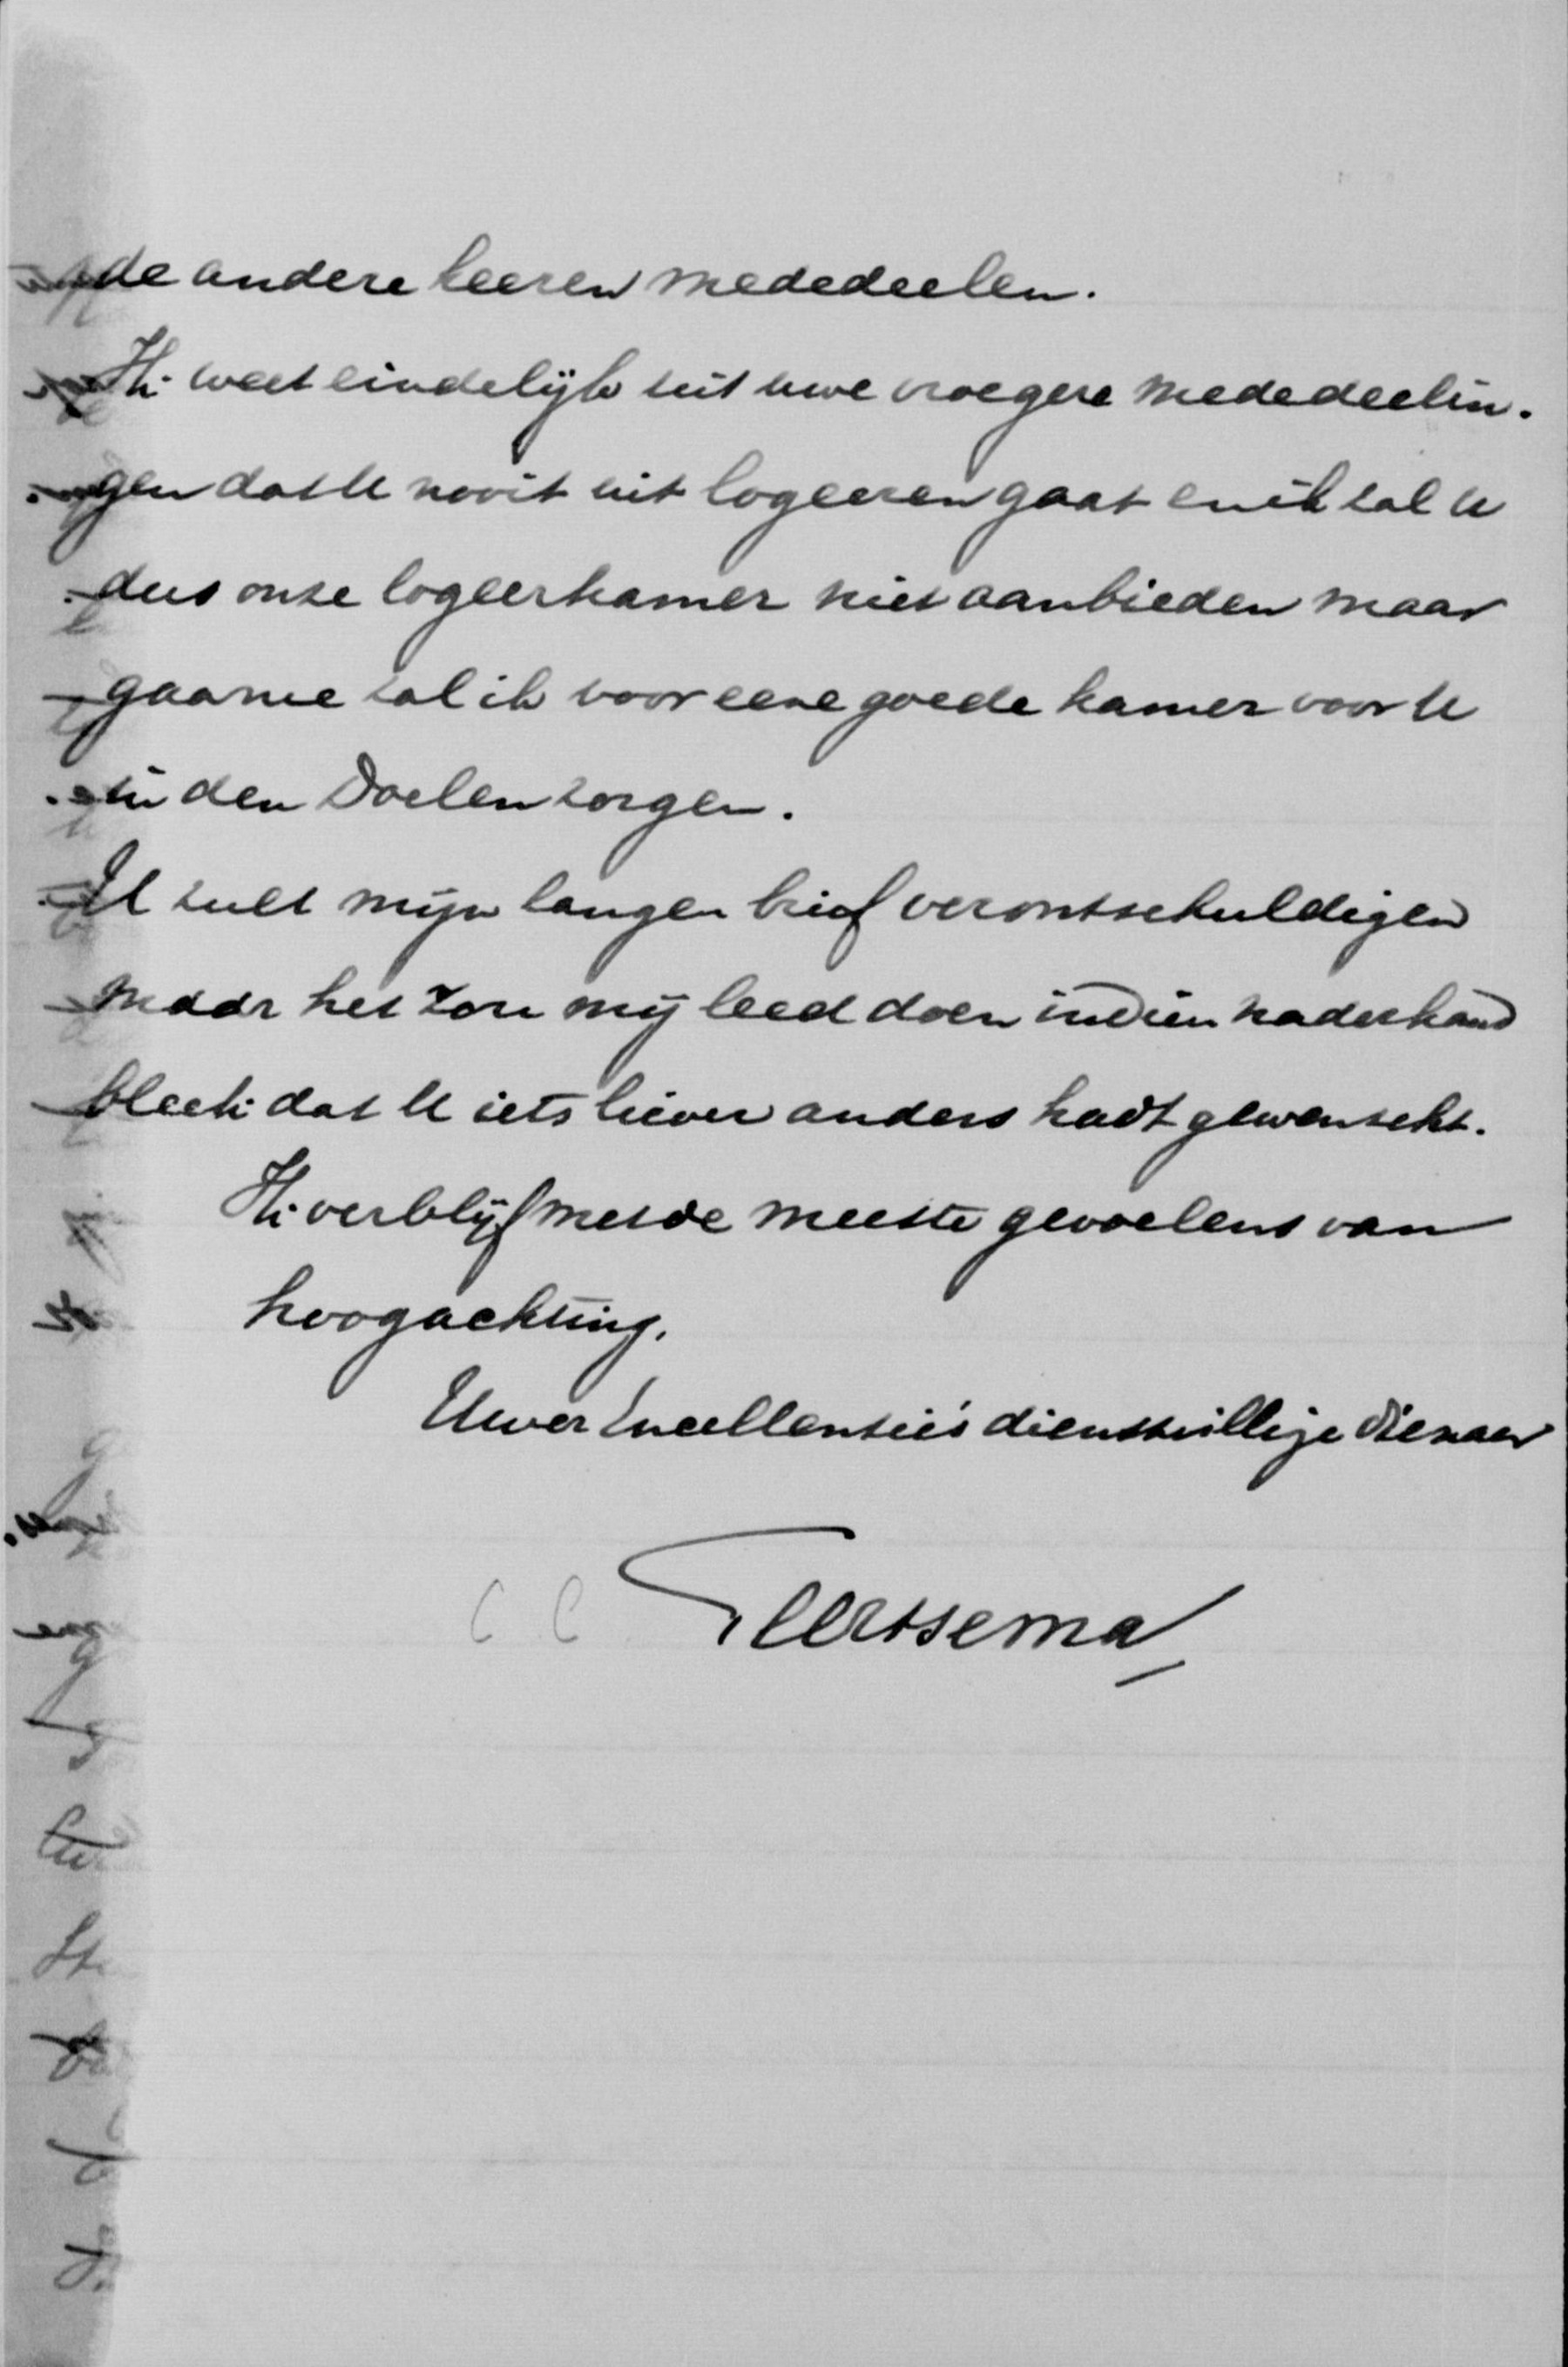 de andere heeren mededeelen.
Ik weet eindelijk uit uwe vroegere mededeelin-
gen dat U nooit uit logeeren gaat en ik zal U
dus onze logeerkamer niet aanbieden maar
gaarne zal ik voor eene goede kamer voor U
in den Doelen zorgen.
U zult mijn langen brief verontschuldigen
maar het zou mij leed doen indien naderhand
bleek dat U iets liever anders hadt gewenscht.
Ik verblijf met de meeste gevoelens van
hoogachting,
Uwer Excellentie's dienstwillige dienaar
Geertsema